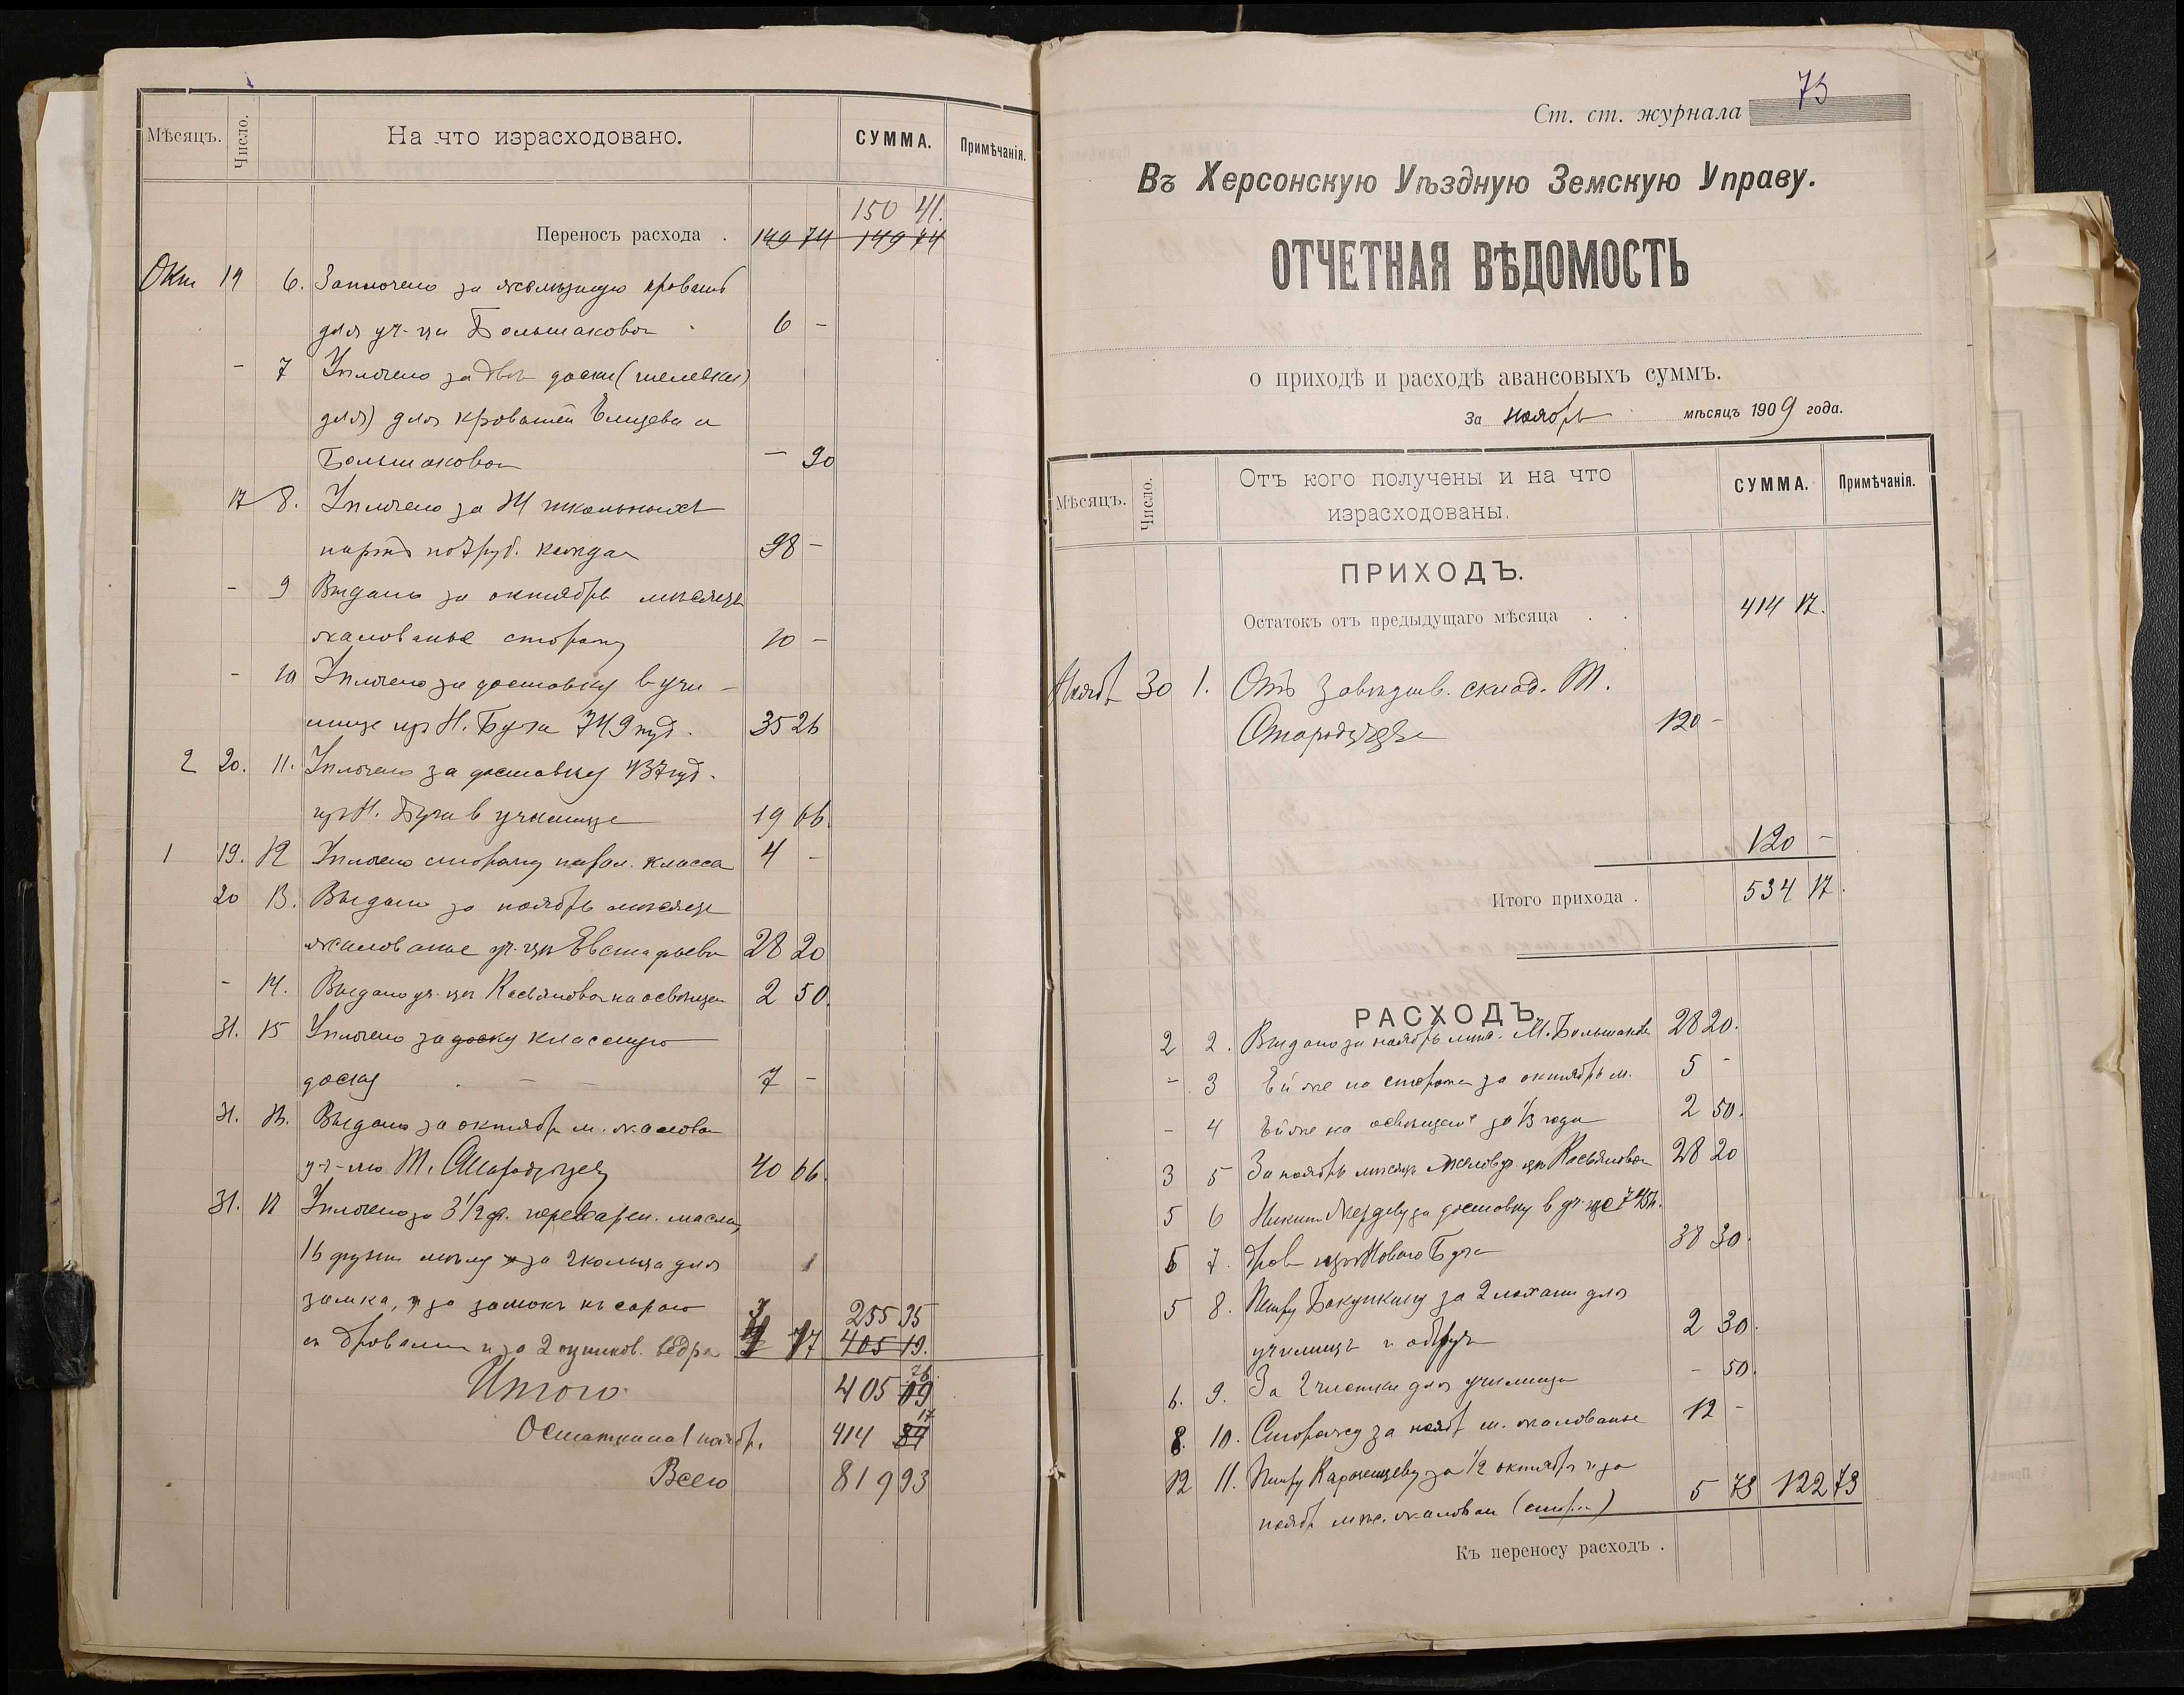 Мѣсяцъ. Число. На что израсходовано. СУММА. Примѣчанія.
150 41.
Переносъ расхода . 149 74 149 74
Окт 14 6. Заплочено за желѣзную кровать
для уч-цы Большаковой 6 -
- 7 Уплочено за двѣ доски (шелевки)
для) для кроватей Елицева и
Большаковой - 90
17 8. Уплочено за 14 школьныхъ
партъ по 7 руб. каждая 98 -
- 9 Выдано за октябрь мѣсяцъ
жалованье сторожу 10 -
- 10 Уплочено за доставку в учи-
лище изъ Н. Буга 749 пуд. 35 26
2 20. 11. Уплочено за доставку 437 пуд.
изъ Н. Буга в училище 19 66.
1 19. 12 Уплочено сторожу парал. класса 4 -
20 13. Выдано за ноябрь мѣсяцъ
жалованье уч-цѣ Евстафьевой 28 20
- 14. Выдано уч-цѣ Касьяновой на освѣщен 2 50.
31. 15 Уплочено за доску классную
доску 7 -
31. 16. Выдано за октябрь м. жалован
уч-лю Т. Стародубцеву 40 66.
31. 17 Уплочено за 3 1/2 ф. деревян. масла,
16 фунт. мѣлу за 2 кольца для
замка, за замокъ къ сараю 255 35
съ дровами и за 2 оцинков. ведра 77 405 19.
Итого 405 76
Остатки на 1 ноябр. 414 17
Всего 819 93
Ст. ст. журнала 73
Въ Херсонскую Уѣздную Земскую Управу.
ОТЧЕТНАЯ ВѢДОМОСТЬ
о приходѣ и расходѣ авансовыхъ суммъ.
За Ноябрь мѣсяцъ 1909 года.
Мѣсяцъ. Число. Отъ кого получены и на что израсходованы. СУММА. Примѣчанія.
ПРИХОДЪ.
Остатокъ отъ предыдущаго мѣсяца . . 414 17.
Ноябр 30 1. Отъ Завѣдыв. склад. Т.
Стародубцева 120 -
120 -
Итого прихода . 534 17.
РАСХОДЪ
2 2. Выдано за ноябрь мѣс. М. Большаковой 28 20.
- 3 Ей же на сторожа за октябрь м. 5 -
- 4 Ей же на освѣщен за 1/3 года 2 50.
3 5 За ноябрь мѣсяцъ жалов уч-цѣ Касьяновой 28 20
5 6 Никит. за доставку в уч-ще 745 п.
5 7. дров изъ Новаго Буга 38 30.
5 8. Петру Бакункину за 2 лохани для
училищъ и обруч 2 30.
6. 9. За 2 чистки для училища - 50.
8. 10. Сторожу за ноябр м. жалованье 12 -
12 11. Петру за 1/2 октября и за
ноябр мѣс. жалован (стор.) 5 73 122 73
Къ переносу расходъ .